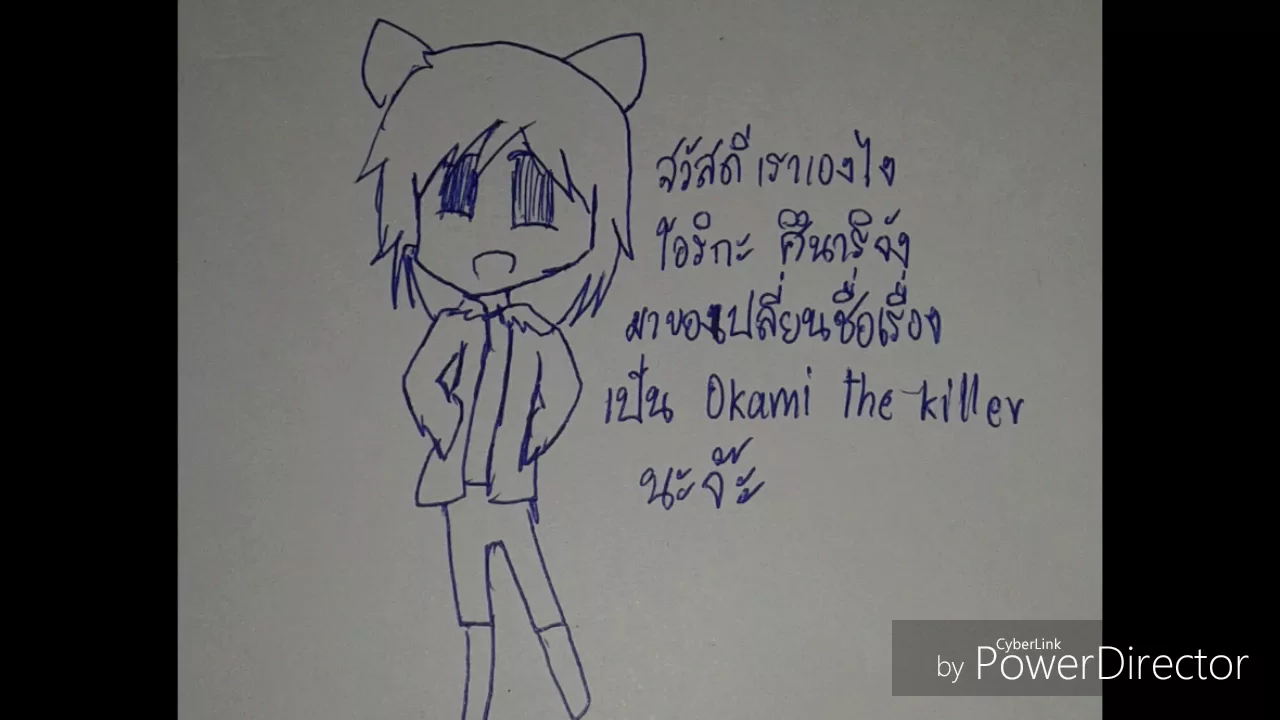 สวัสดี เราเองไง
โอริกะ ศึนาริจัง
มาขอเปลี่ยนชื่อเรื่อง
เป็น Okami the killer
นะจ๊ะ
CyberLink
by PowerDirector